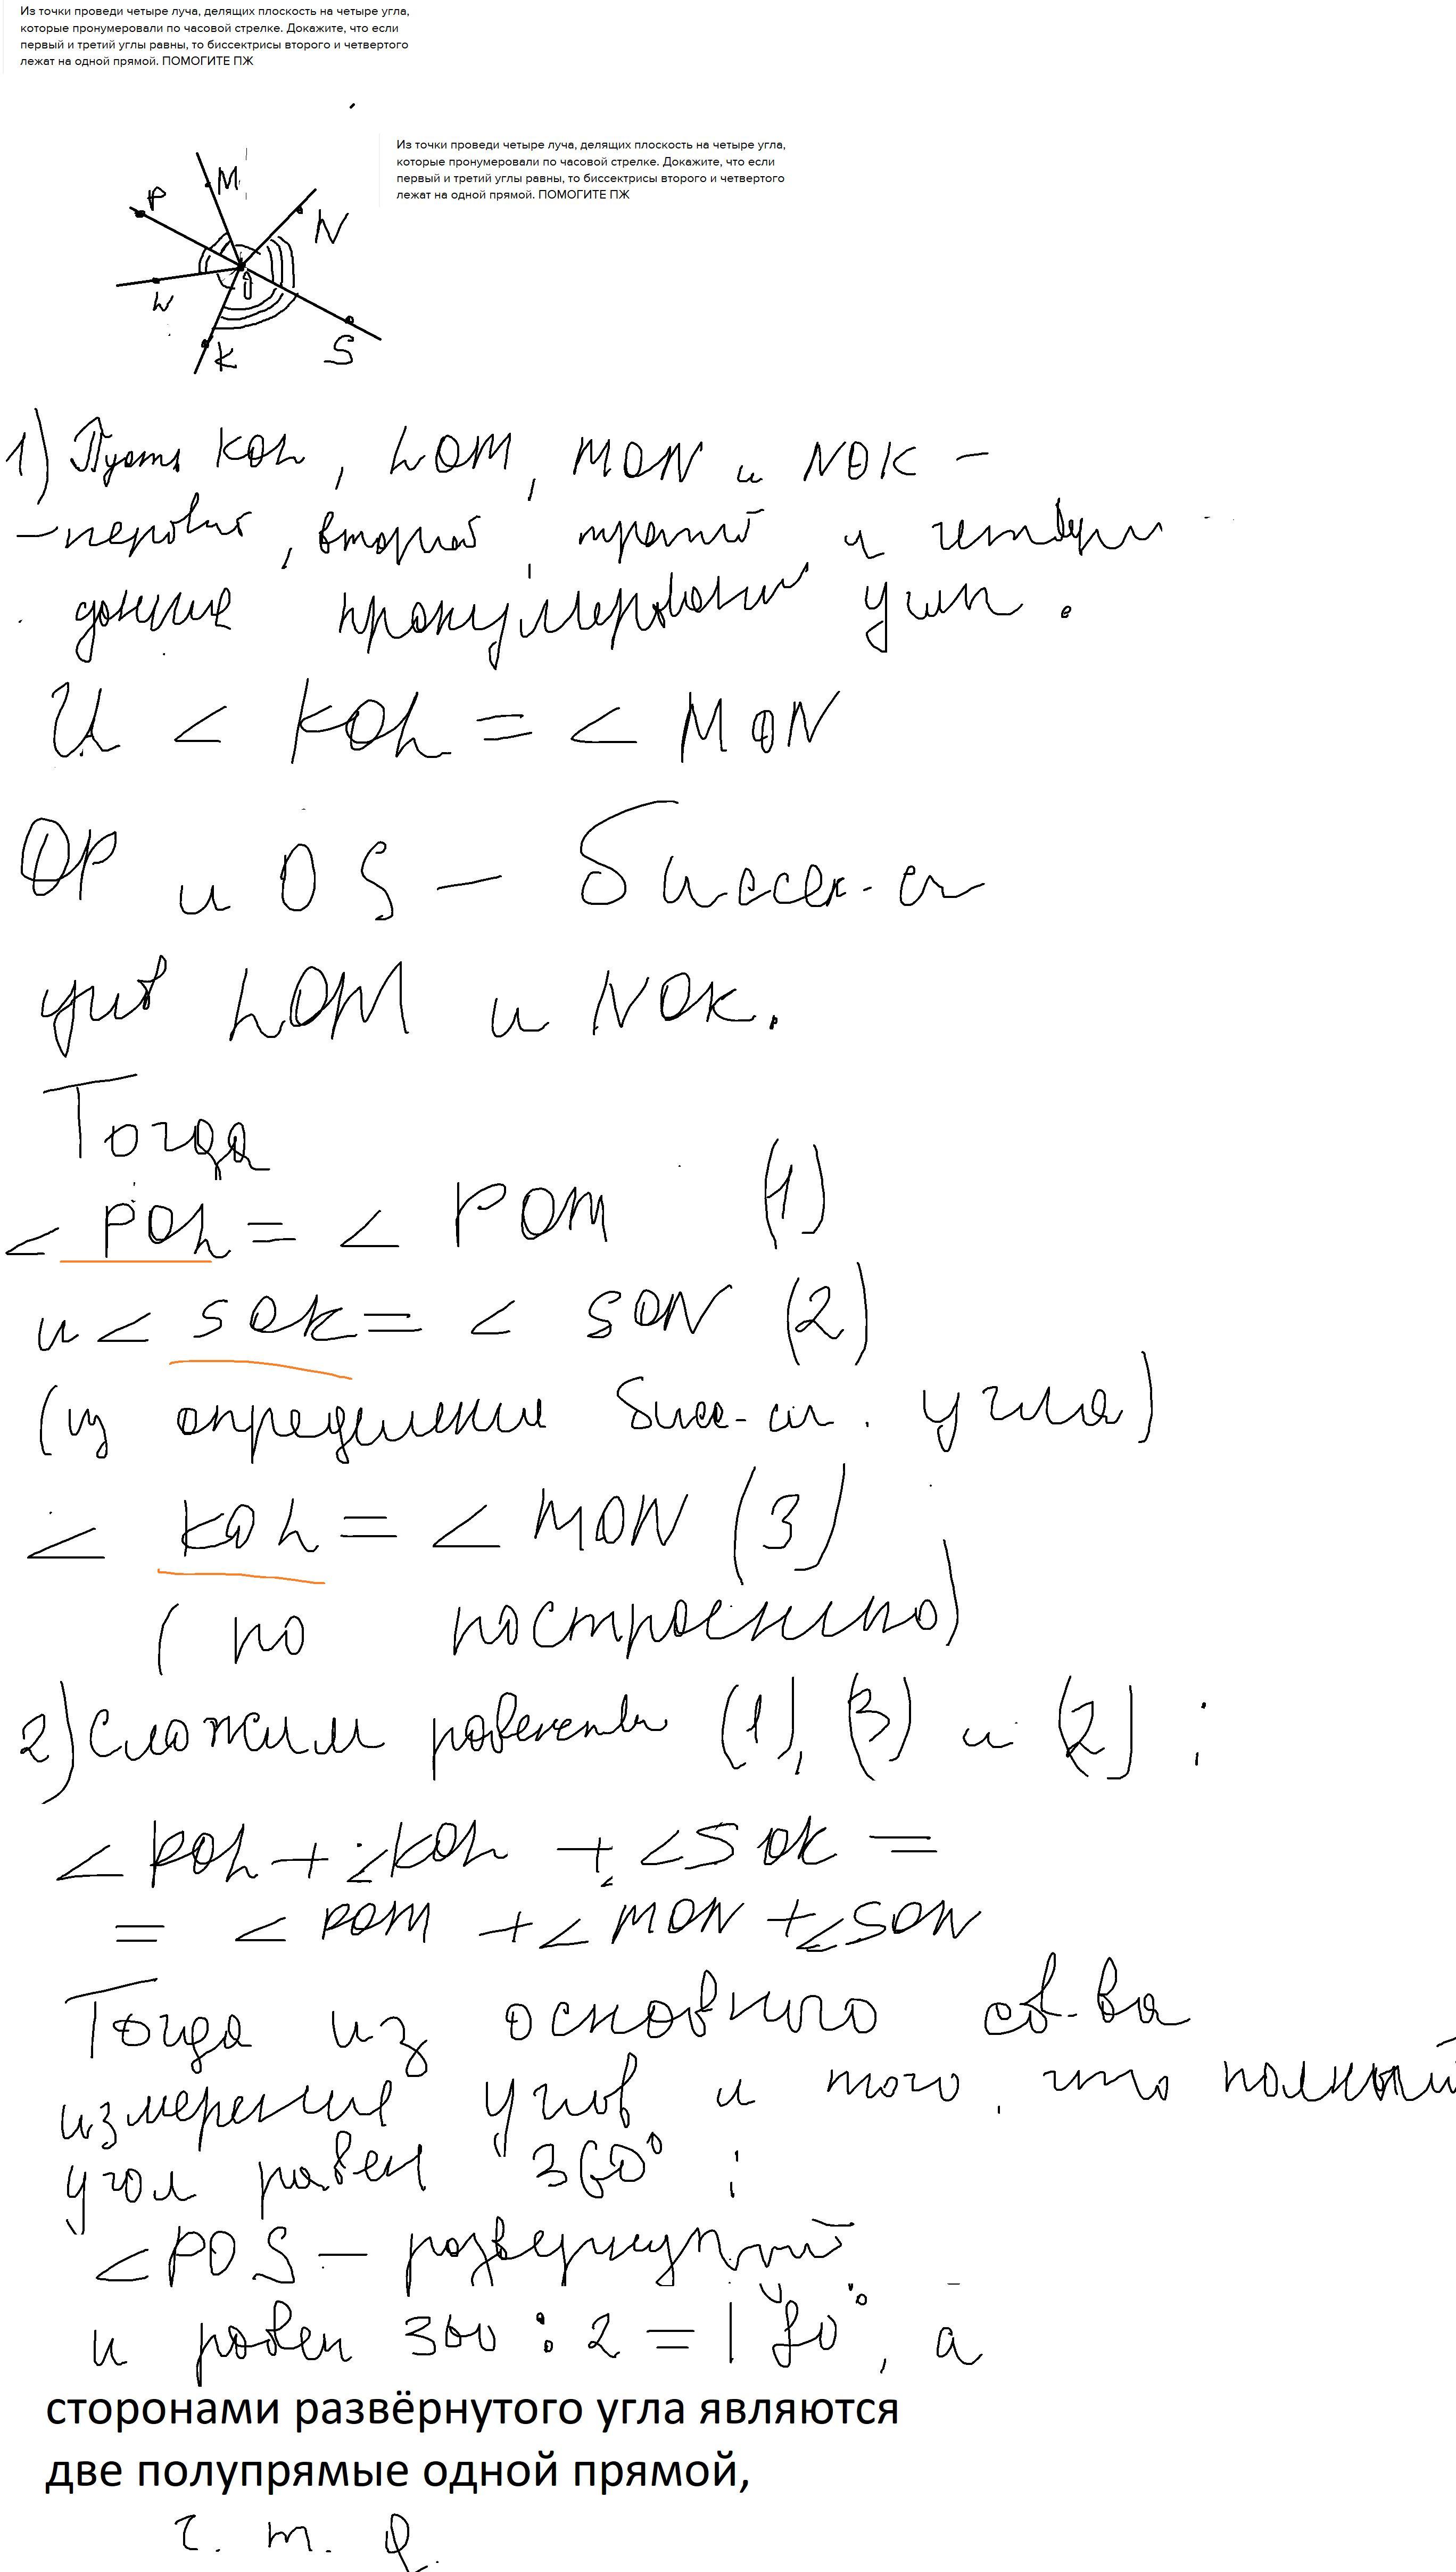 Из точки проведи четыре луча, делящих плоскость на четыре угла,
которые пронумеровали по часовой стрелке. Докажите, что если
первый и третий углы равны, то биссектрисы второго и четвертого
лежат на одной прямой. ПОМОГИТЕ ПЖ
Из точки проведи четыре луча, делящих плоскость на четыре угла,
которые пронумеровали по часовой стрелке. Докажите, что если
первый и третий углы равны, то биссектрисы второго и четвертого
лежат на одной прямой. ПОМОГИТЕ ПЖ
M
P
N
O
L
K
S
1) Пусть KOL, LOM, MON и NOK –
– первый, второй, третий и
данные пронумерованные углы.
И < KOL = < MON
OP и OS – биссек-сы
углов LOM и NOK.
Тогда
< POL = < POM (1)
и < SOK = < SON (2)
(из определения бисс-сы. угла)
< KOL = < MON (3)
(по построению)
2) Сложим равенства (1), (3) и (2) :
< POL + < KOL + < SOK =
= < POM + < MON + < SON
Тогда из основного св-ва
измерения углов и того, что полный
угол равен 360° :
< POS – развернутый
и равен 360 : 2 = 180°, а
сторонами развёрнутого угла являются
две полупрямые одной прямой,
ч. т. д.